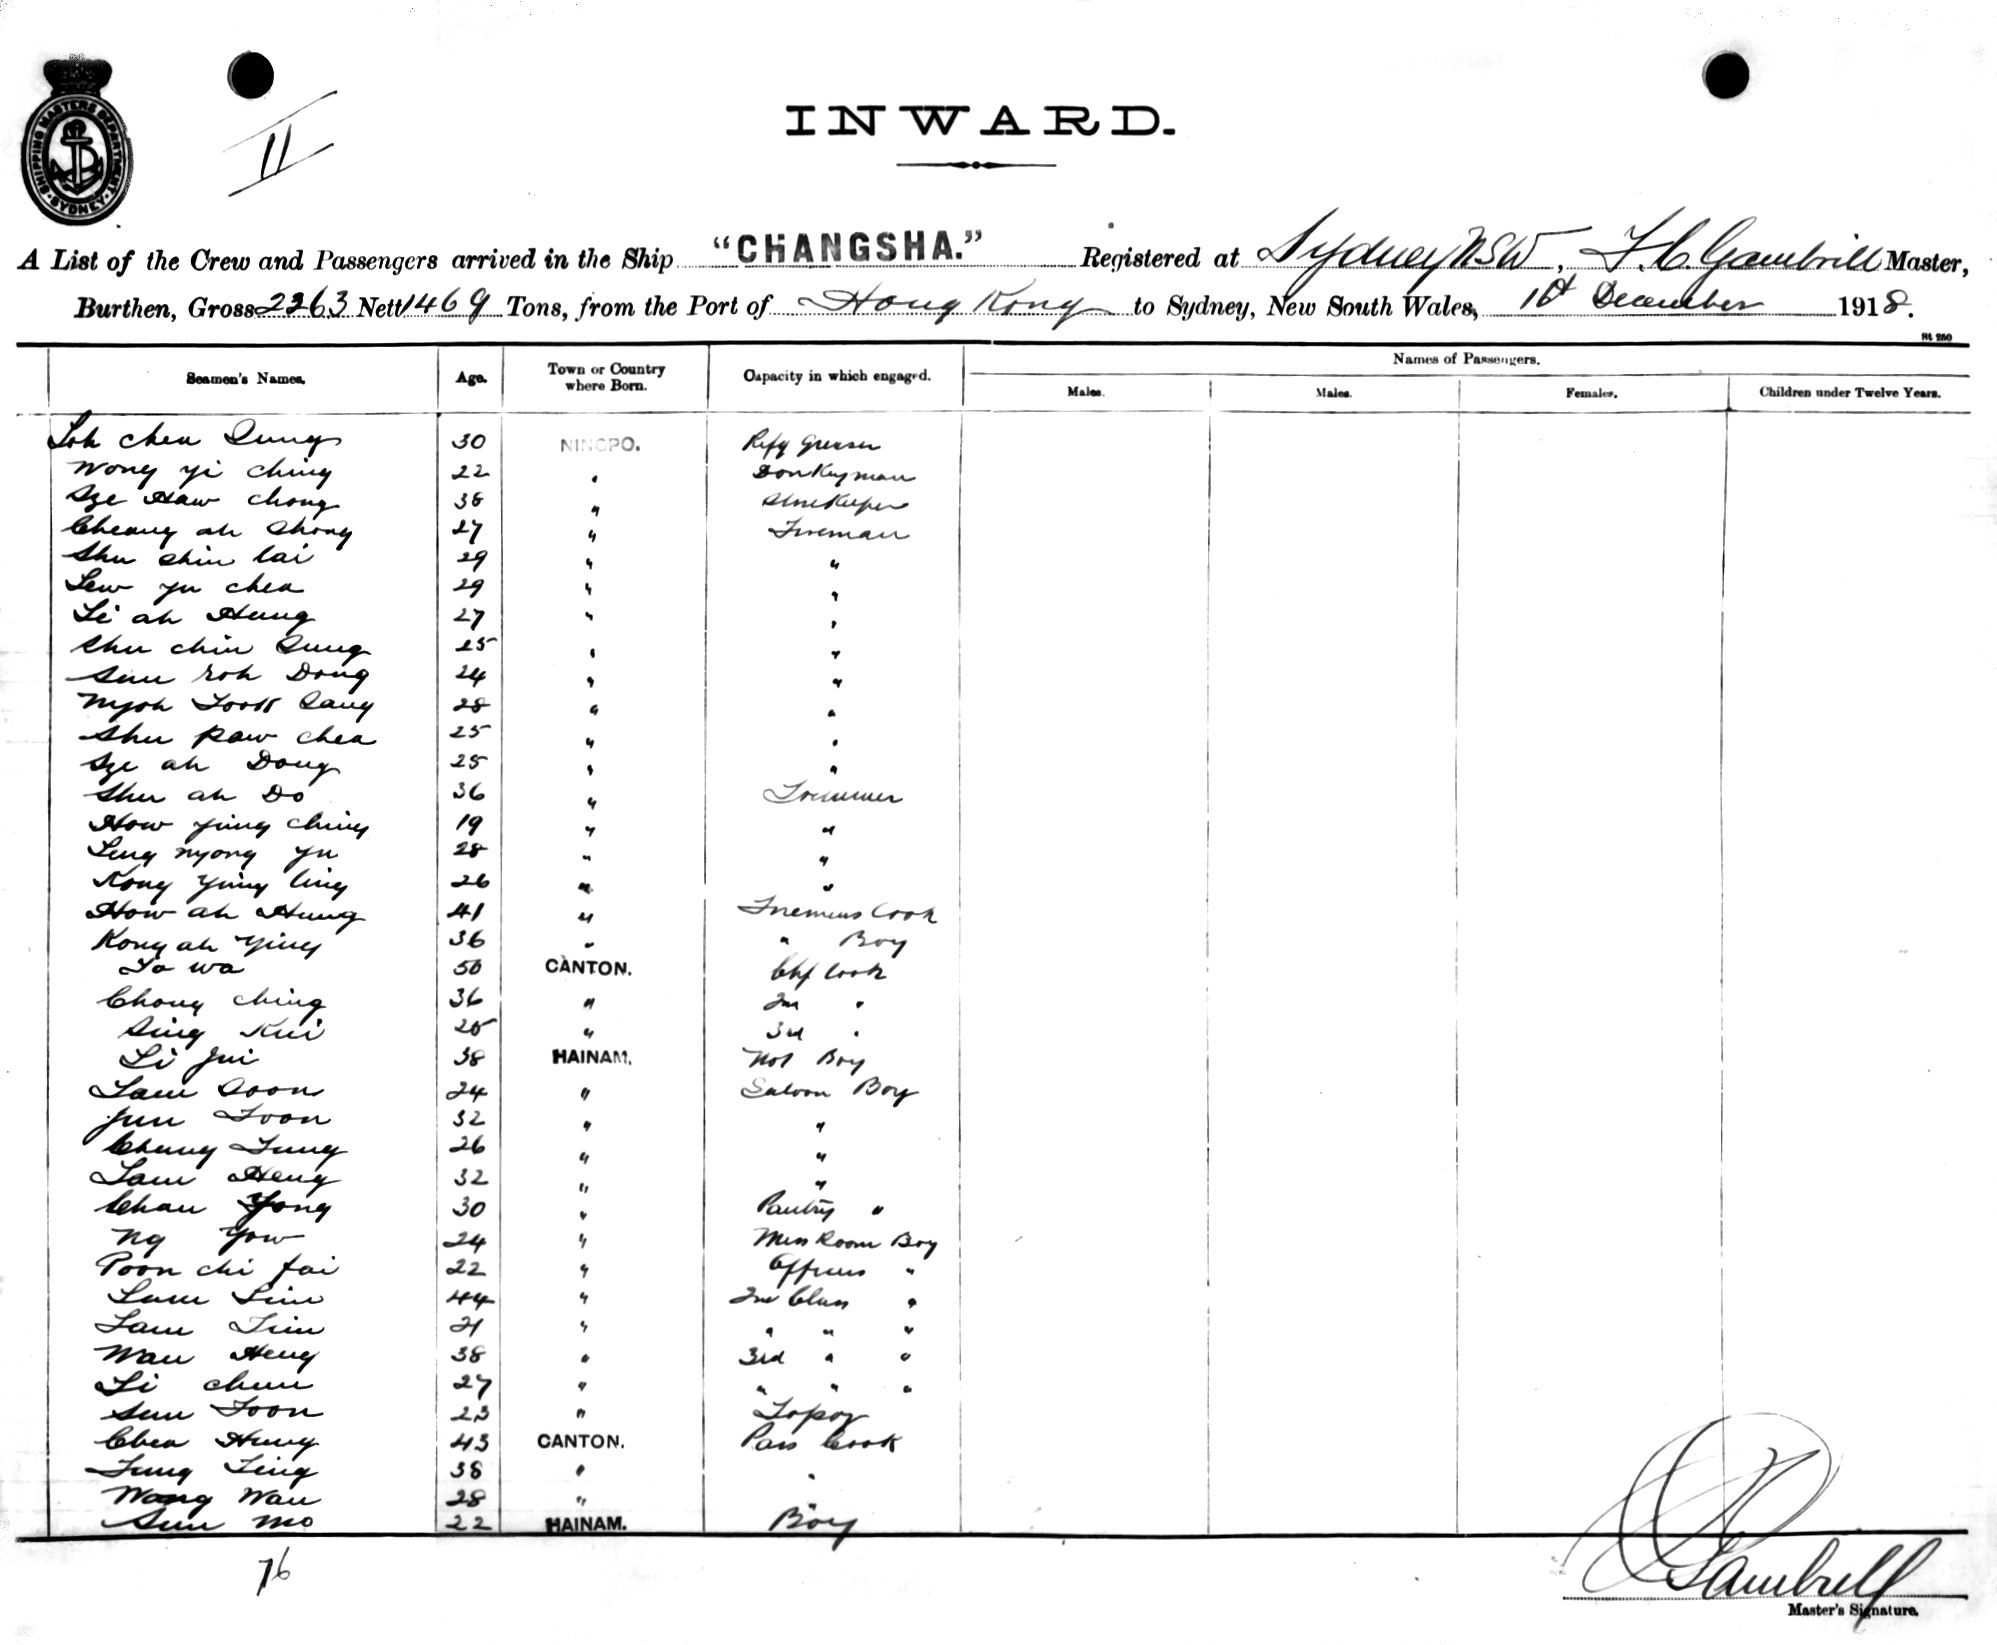 SHIPPING MASTERS DEPARTMENT
SYDNEY
II
INWARD.
A List of the Crew and Passengers arrived in the Ship "CHANGSHA." Registered at Sydney NSW, F.C. Gambrill Master,
Burthen, Gross 2263 Nett 1469 Tons, from the Port of Hong Kong to Sydney, New South Wales, 1st December 1918.
St 250
Seamen's Names. Age. Town or Country where Born. Capacity in which engaged. Names of Passengers.
Males. Males. Females. Children under Twelve Years.
Loh Chea Sung 30 NINGPO. Refg Greaser
Wong Yi Ching 22 " Donkeyman
Sze Haw Chong 38 " Storekeeper
Cheang ah Shong 27 " Fireman
Shu Shin Lai 29 " "
Lew Yu Chea 29 " "
Li ah Hung 27 " "
Shu Chin Sung 25 " "
Sun Roh Dong 24 " "
Nyoh Took Sang 28 " "
Shu Kaw Chea 25 " "
Sze ah Dong 25 " "
Shu ah Do 36 " Trimmer
How Ying Ching 19 " "
Ling Nyong Yu 28 " "
Kong Ying Ling 26 " "
How ah Hung 41 " Firemens Cook
Kong ah Ying 36 " " Boy
Ta Wa 50 CANTON. Chf Cook
Chong Ching 36 " 2nd "
Sing Kui 25 " 3rd "
Li Jui 38 HAINAM. No1 Boy
Lam Soon 24 " Saloon Boy
Jun Toon 32 " "
Chung Tung 26 " "
Lam Heng 32 " "
Chan Yong 30 " Pantry "
Ng Yow 24 " Mess Room Boy
Poon Chi Fai 22 " Officers "
Lum Lim 44 " 2nd Class "
Lam Tim 21 " " " "
Wan Heng 38 " 3rd " "
Li Chun 27 " " " "
Sun Toon 23 " Topoz
Chea Hung 43 CANTON. Pass Cook
Fung Ting 38 " "
Wong Wan 28 " "
Sun Mo 22 HAINAM. Boy
76
Gambrill
Master's Signature.